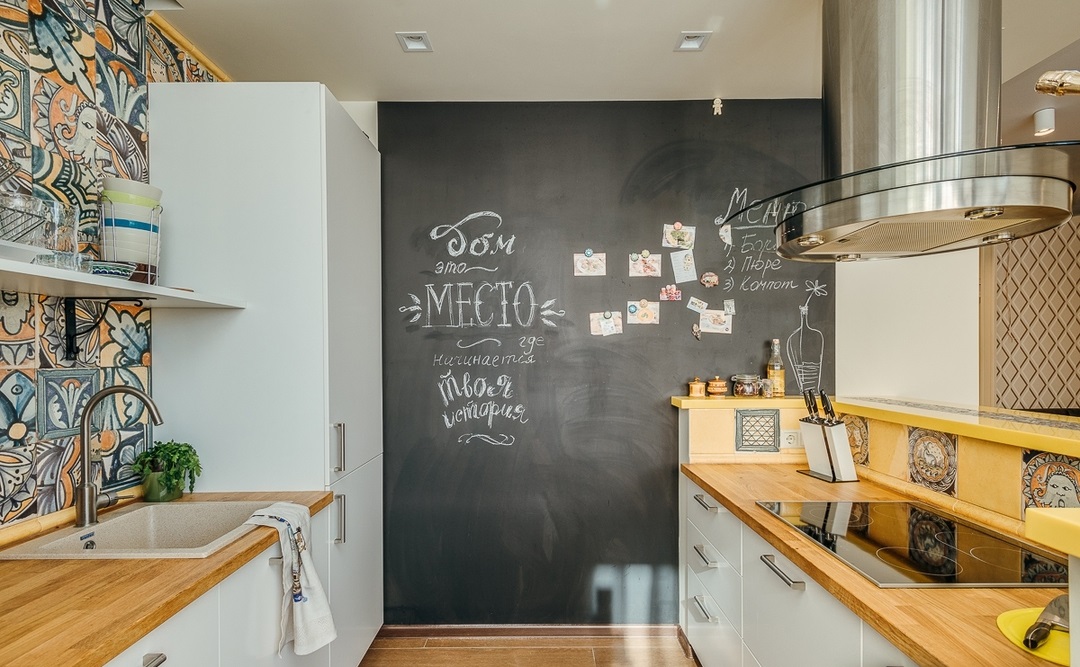 Дом
это
МЕСТО
где
начинается
твоя
история
Меню
1)
2) Пюре
3) Компот